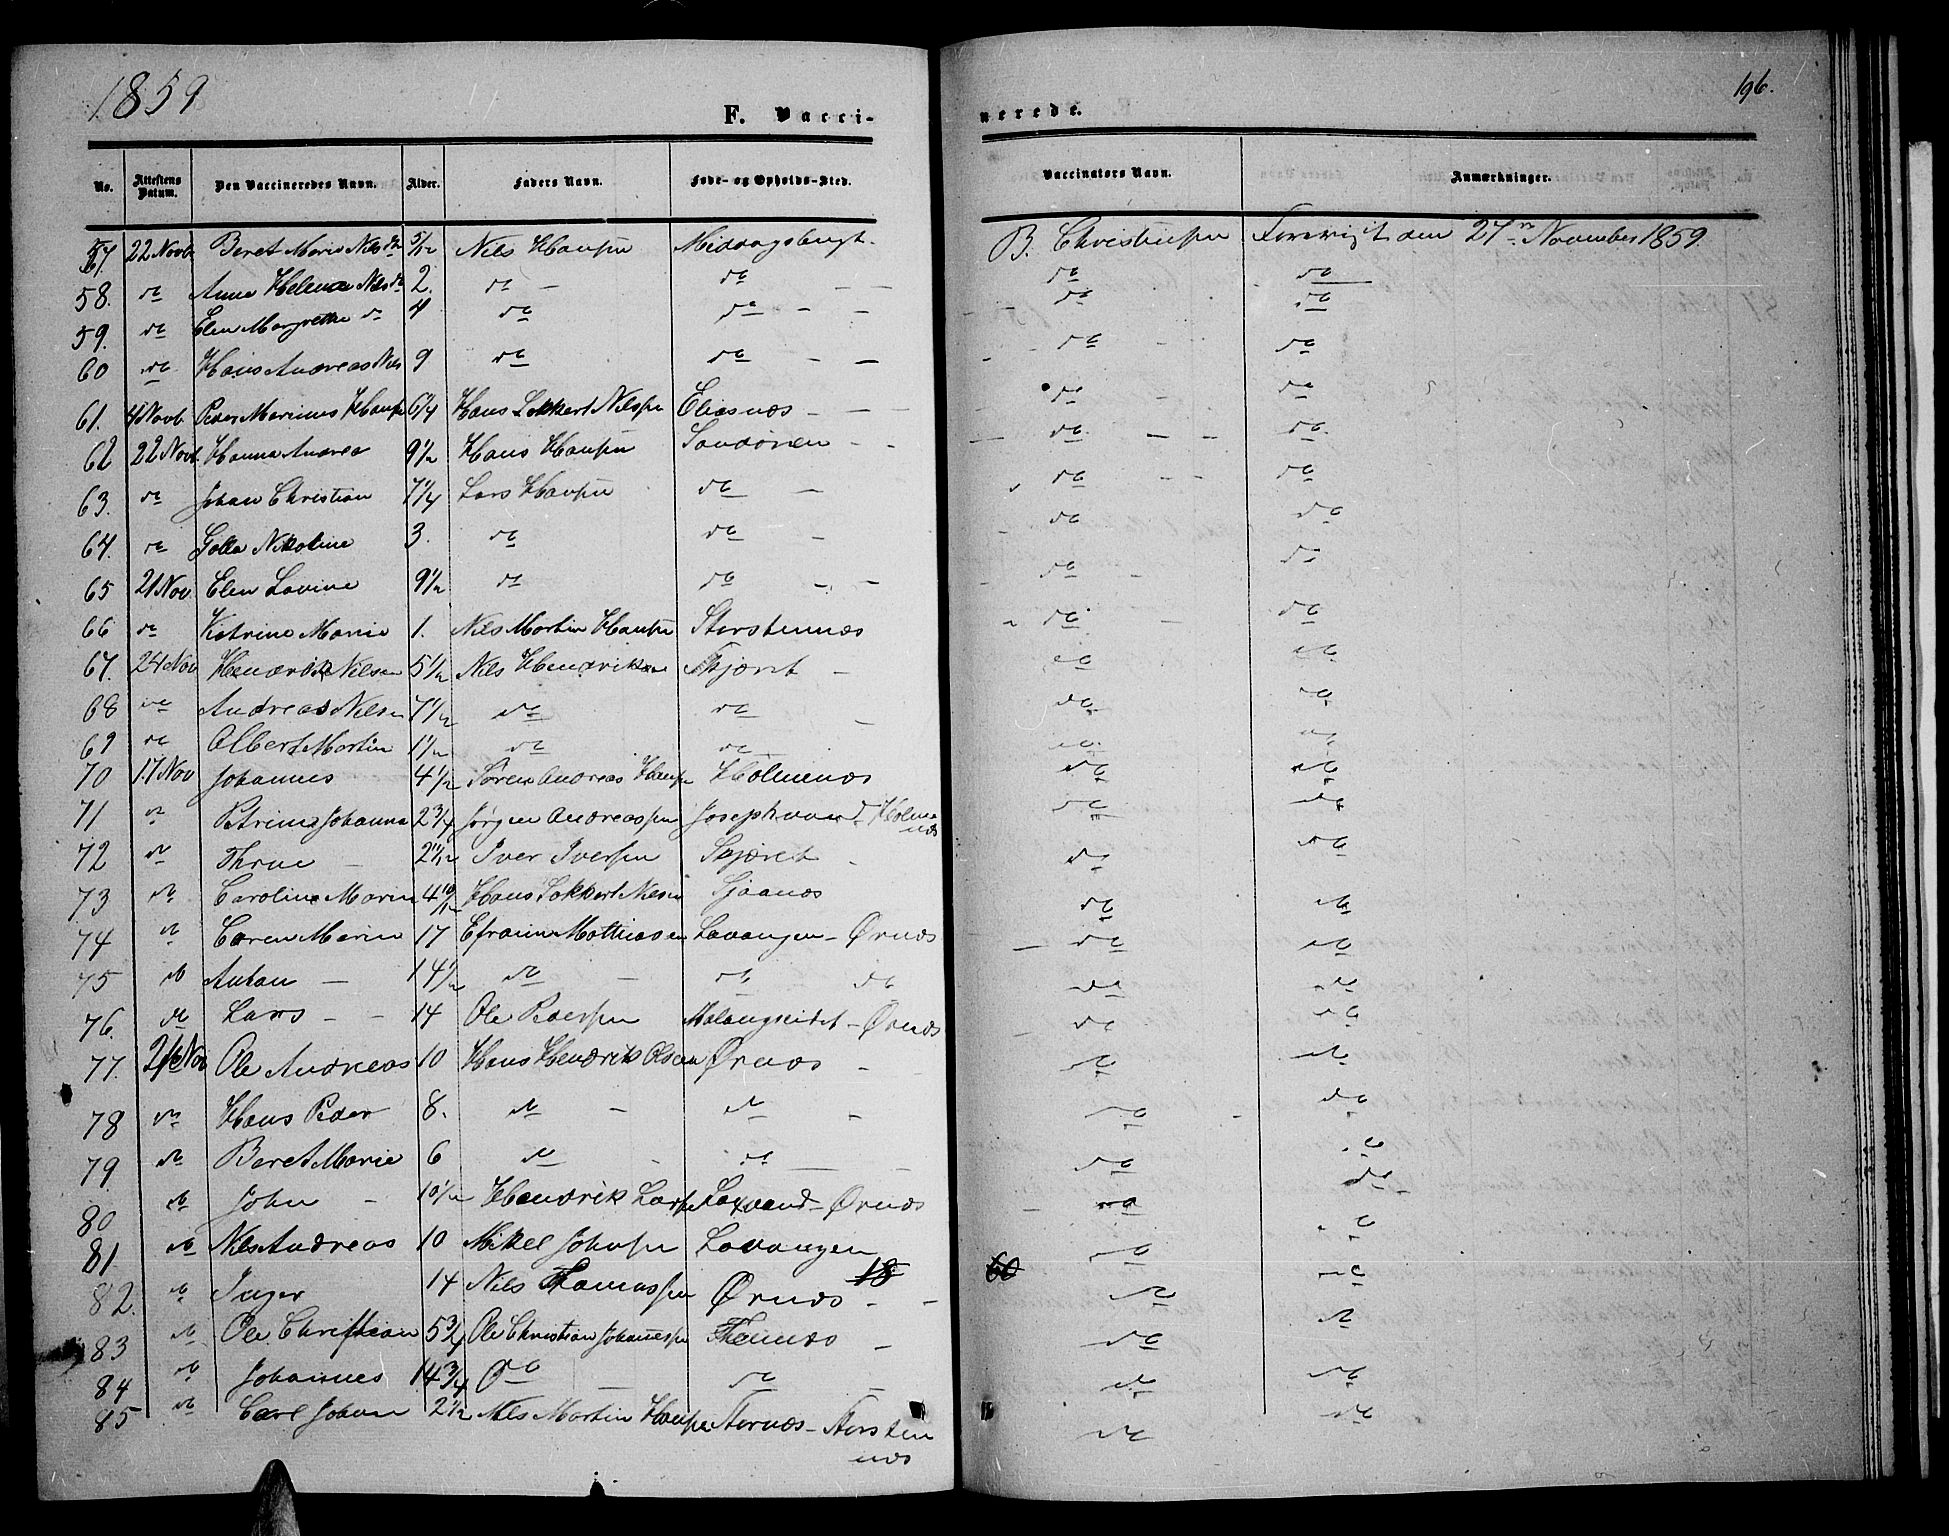 1859
196.
F. Vacci-
nerede.
No. Attestens Datum. Den Vaccineredes Navn. Alder. Faders Navn. Føde- og Opholds-Sted. Vaccinators Navn. Anmærkninger.
57 22 Novb Beret Marie Nilsdr 5/12 Nils Hansen B. Christensen den 27 November 1859.
58. do Anne Helena Nilsdr 2. do do do do
59. do Elen Margrethe do 4 do do do do
60 do Hans Andreas Nils 9 do do do do
61. 4 Novb. Peder Marinus Hansen 6 1/4 Hans Lokkert Nilsen Eliasnæs do do
62 22 Novb Hanna Andrea 9 1/2 Hans Hansen Sandøren do do
63. do Johan Christian 7 1/4 Lars Hansen do do do
64. do Nikoline 3. do do do do
65 21 Nov. Elen Lovine 9 1/2 do do do do
66 do Katrine Marie 1. Nils Martin Hansen Storstennæs do do
67. 24 Nov Hendrik Nilsen 5 1/2 Nils Hendriksen Skjæret do do
68 do Andreas Nilsen 7 1/2 do do do do
69 do Albert Martin 1 1/2 do do do do
70 17 Nov Johannes 4 1/2 Søren Andreas Hansen Holmenæs do do
71 do Petrine Johanna 2 3/4 Jørgen Andreassen Josephvand Holmenæs do do
72 do Thrue 2 1/12 Iver Iversen Skjæret do do
73 do Caroline Marie 4 10/12 Hans Lokkert Nilsen Sjaanæs do do
74 do Caren Marie 17 Efraim Mathiasen Lavangen - Ørnæs do do
75 do Anton 14 1/2 do do do do do
76. do Lars 14 Ole Pedersen Malangseidet - Ørnæs do do
77. Nov Ole Andreas 10 Hans Hendrik Olsen Ørnæs do do
78 do Hans Peder 8. do do do do
79. do Beret Marie 6 do do do do
80 do John 10 1/2 Hendrik Larsen Laxvand - Ørnæs do do
81. do Nils Andreas 10 Mikel Johnsen Lavangen do do
82. do Inger 14 Nils Thomassen Ørnæs 18 60 do do
83 do Ole Christian 5 3/4 Ole Christian Johannesen do do
84 do Johannes 14 3/4 do do do do
85 do Carl Johan 2 1/2 Nils Martin Hansen Stornæs - Storstennæs do do